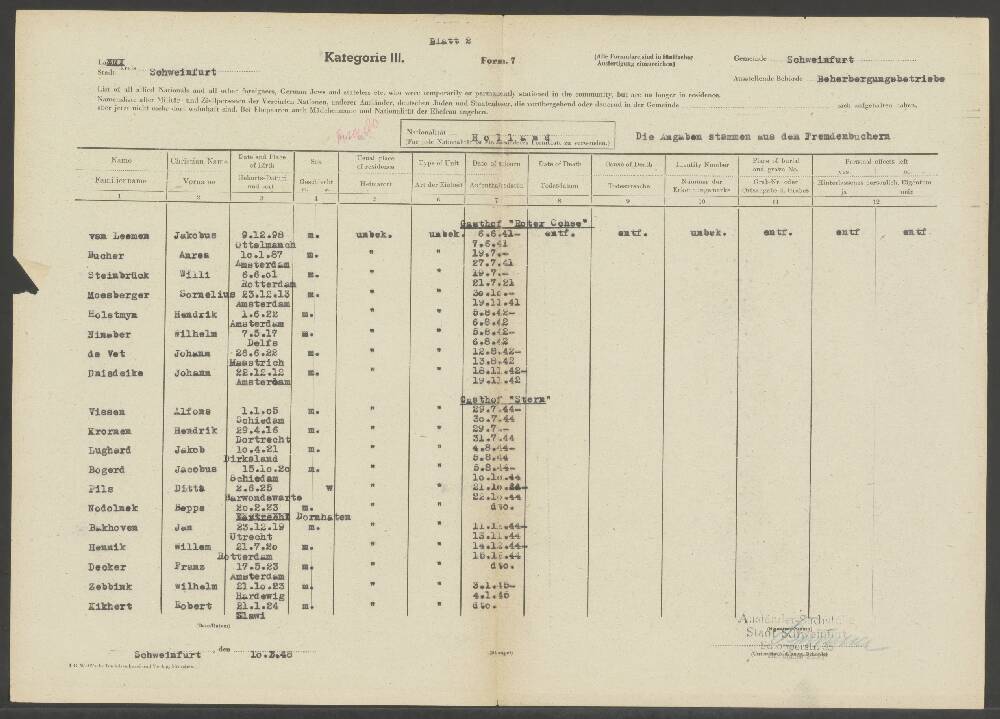 Blatt 2
Kategorie III.
Form. 7
(Alle Formulare sind in facher Ausfertigung einzureichen)
Gemeinde Schweinfurt
Stadt Kreis Schweinfurt
Ausstellende Behörde Beherbergungsbetriebe
List of all allied Nationals and all other foreigners, German Jews and stateless etc. who were temporarily or permanently stationed in the community, but are no longer in residence.
Namensliste aller Militär- und Zivilpersonen der Vereinten Nationen, anderer Ausländer, deutschen Juden und Staatenloser, die vorübergehend oder dauernd in der Gemeinde sich aufgehalten haben,
aber jetzt nicht mehr dort wohnhaft sind. Bei Ehepaaren auch Mädchenname und Nationalität der Ehefrau angeben.
Nationalität Holland
(Für jede Nationalität ist ein besonderes Formular zu verwenden.)
Die Angaben stammen aus den Fremdenbuchern
Name Christian Name Date and Place of Birth Sex Usual place of residence Type of Unit Date of sojourn Date of Death Cause of Death Identity Number Place of burial and grave No. Personal effects left
yes no
Familienname Vorname Geburts-Datum und -ort Geschlecht Heimatort Art der Einheit Aufenthaltszeit Todesdatum Todesursache Nummer der Erkennungsmarke Grab-Nr. oder Ortsangabe d. Grabes Hinterlassenes persönlich. Eigentum
ja nein
1 2 3 4 5 6 7 8 9 10 11 12
Gasthof "Roter Ochse"
van Leemen Jakobus 9.12.98 m. unbek. unbek. 6.6.41- entf. entf. unbek. entf. entf entf
Ottelmanch 7.6.41
Bucher Anres 10.1.87 m. " " 19.7.-
Amsterdam 27.7.41
Steinbrück Willi 6.6.01 m. " " 19.7.-
Rotterdam 21.7.21
Moesberger Sornelius 23.12.13 m. " " 30.10.-
Amsterdam 19.11.41
Holstmyn Hendrik 1.6.22 m. " " 5.8.42-
Amsterdam 6.8.42
Nineber Wilhelm 7.5.17 m. " " 5.8.42-
Delfs 6.8.42
de Vet Johann 26.6.22 m. " " 12.8.42-
Maastrich 13.8.42
Dnisdeike Johann 22.12.12 m. " " 18.11.42-
Amsterdam 19.11.42
Gasthof "Stern"
Vissen Alfons 1.1.05 m. " " 29.7.44-
Schiedam 30.7.44
Kromen Hendrik 29.4.16 m. " " 29.7.-
Dortrecht 31.7.44
Lughard Jakob 10.4.21 m. " " 4.8.44-
Dirksland 5.8.44
Bogerd Jacobus 15.10.20 m. " " 5.8.44-
Schiedam 10.10.44
Pils Ditta 2.6.25 w " " 21.10.44-
Harwondswarte 22.10.44
Nodolnek Beppe 20.2.23 m. " " dto.
Dornhaten
Bakhoven Jan 23.12.19 m. " " 11.11.44-
Utrecht 13.11.44
Hennik Willem 21.7.20 m. " " 14.12.44-
Rotterdam 15.12.44
Decker Franz 17.5.23 m. " " dto.
Amsterdam
Zebbink Wilhelm 21.10.23 m. " " 3.1.45-
Hardewig 4.1.45
Kikhert Robert 21.1.24 m. " " dto.
Slawi
(Date/Datum)
Schweinfurt, den 10.3.48
(Stempel)
Stadt Schweinfurt